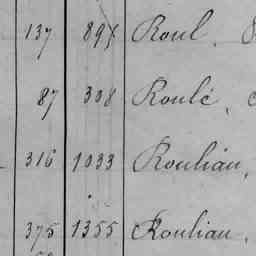 137 895 Roul.
87 308 Roulé,
316 1033 Rouliau,
375 1355 Rouliau,